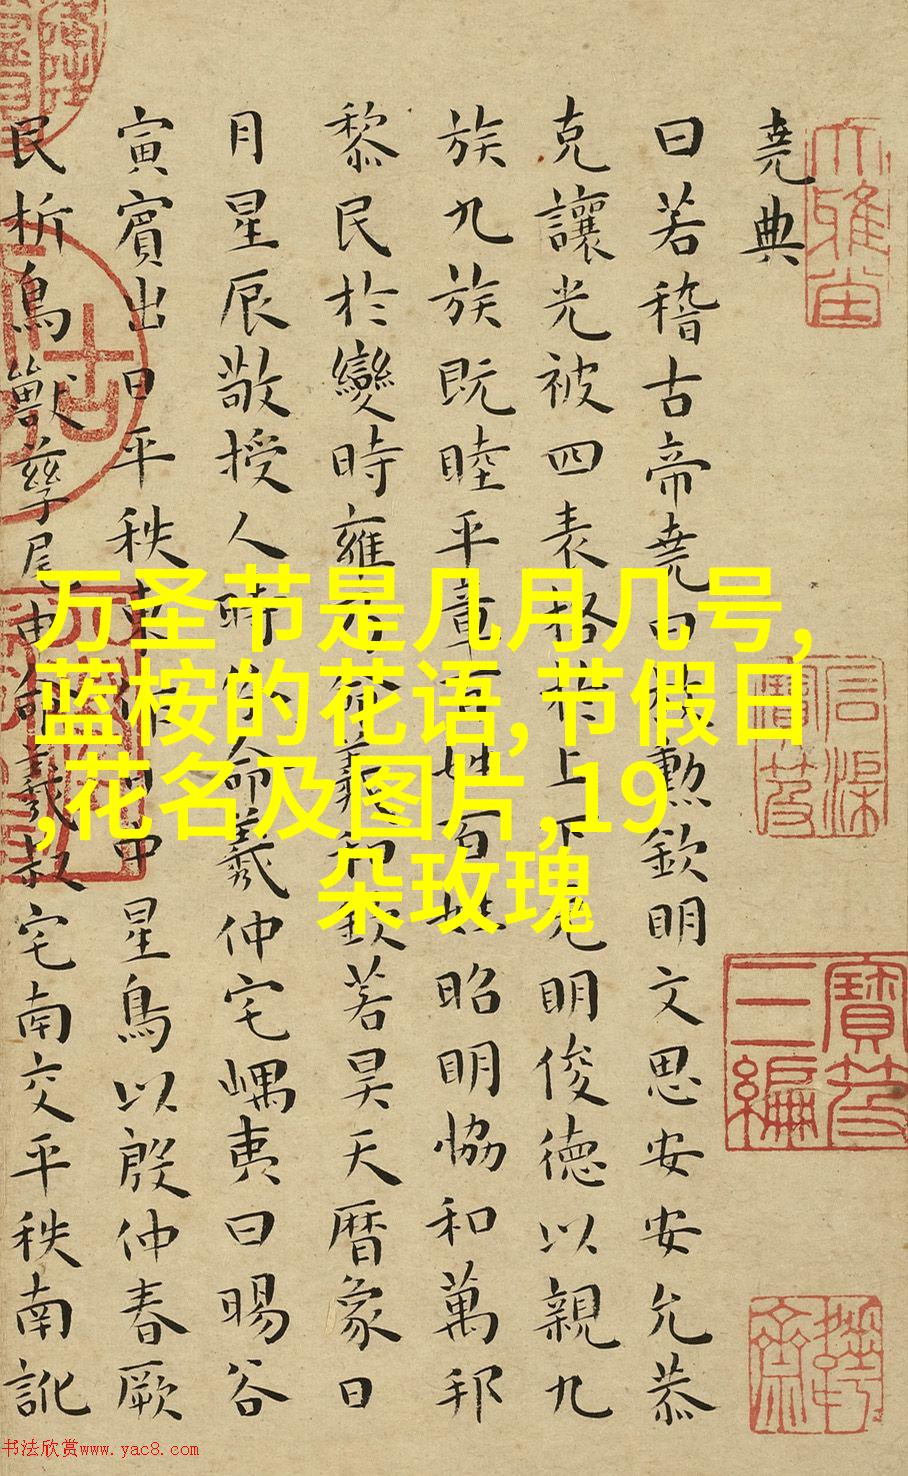 堯典
曰若稽古帝堯曰放勲欽明文思安安允恭
克讓光被四表格於上下克明俊德以親九
族九族既睦平章百姓百姓昭明恊和萬邦
黎民於變時雍乃命羲和欽若昊天曆象日
月星辰敬授人時分命羲仲宅嵎夷曰暘谷
寅賓出日平秩東作日中星鳥以殷仲春厥
民析鳥獸孳尾申命羲叔宅南交平秩南訛
寶笈
三編
万圣节是几月几号,
蓝桉的花语,节假日
,花名及图片,19
朵玫瑰
书法欣赏www.yac8.com